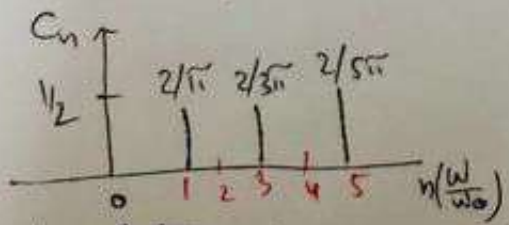 Cn
2/π 2/3π 2/5π
1/2
0 1 2 3 4 5 n(ω/ω0)